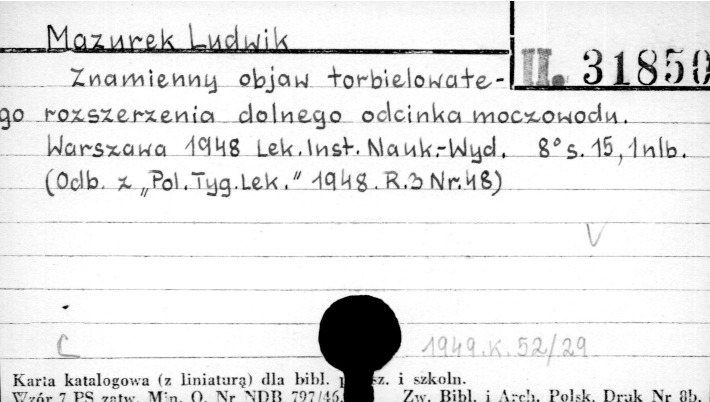 Mazurek Ludwik
II. 31850
Znamienny objaw torbielowate-
go rozszerzenia dolnego odcinka moczowodu.
Warszawa 1948 Lek.Inst.Nauk.-Wyd. 8° s.15, 1 nlb.
(Odb. z „Pol.Tyg.Lek.” 1948.R.3 Nr.48)
V
C 1949.K.52/29
Karta katalogowa (z liniaturą) dla bibl. sz. i szkoln.
Wzór 7 PS zatw. Min. O. Nr NDB 797/46. Zw. Bibl. i Arch. Polsk. Druk Nr 8b.